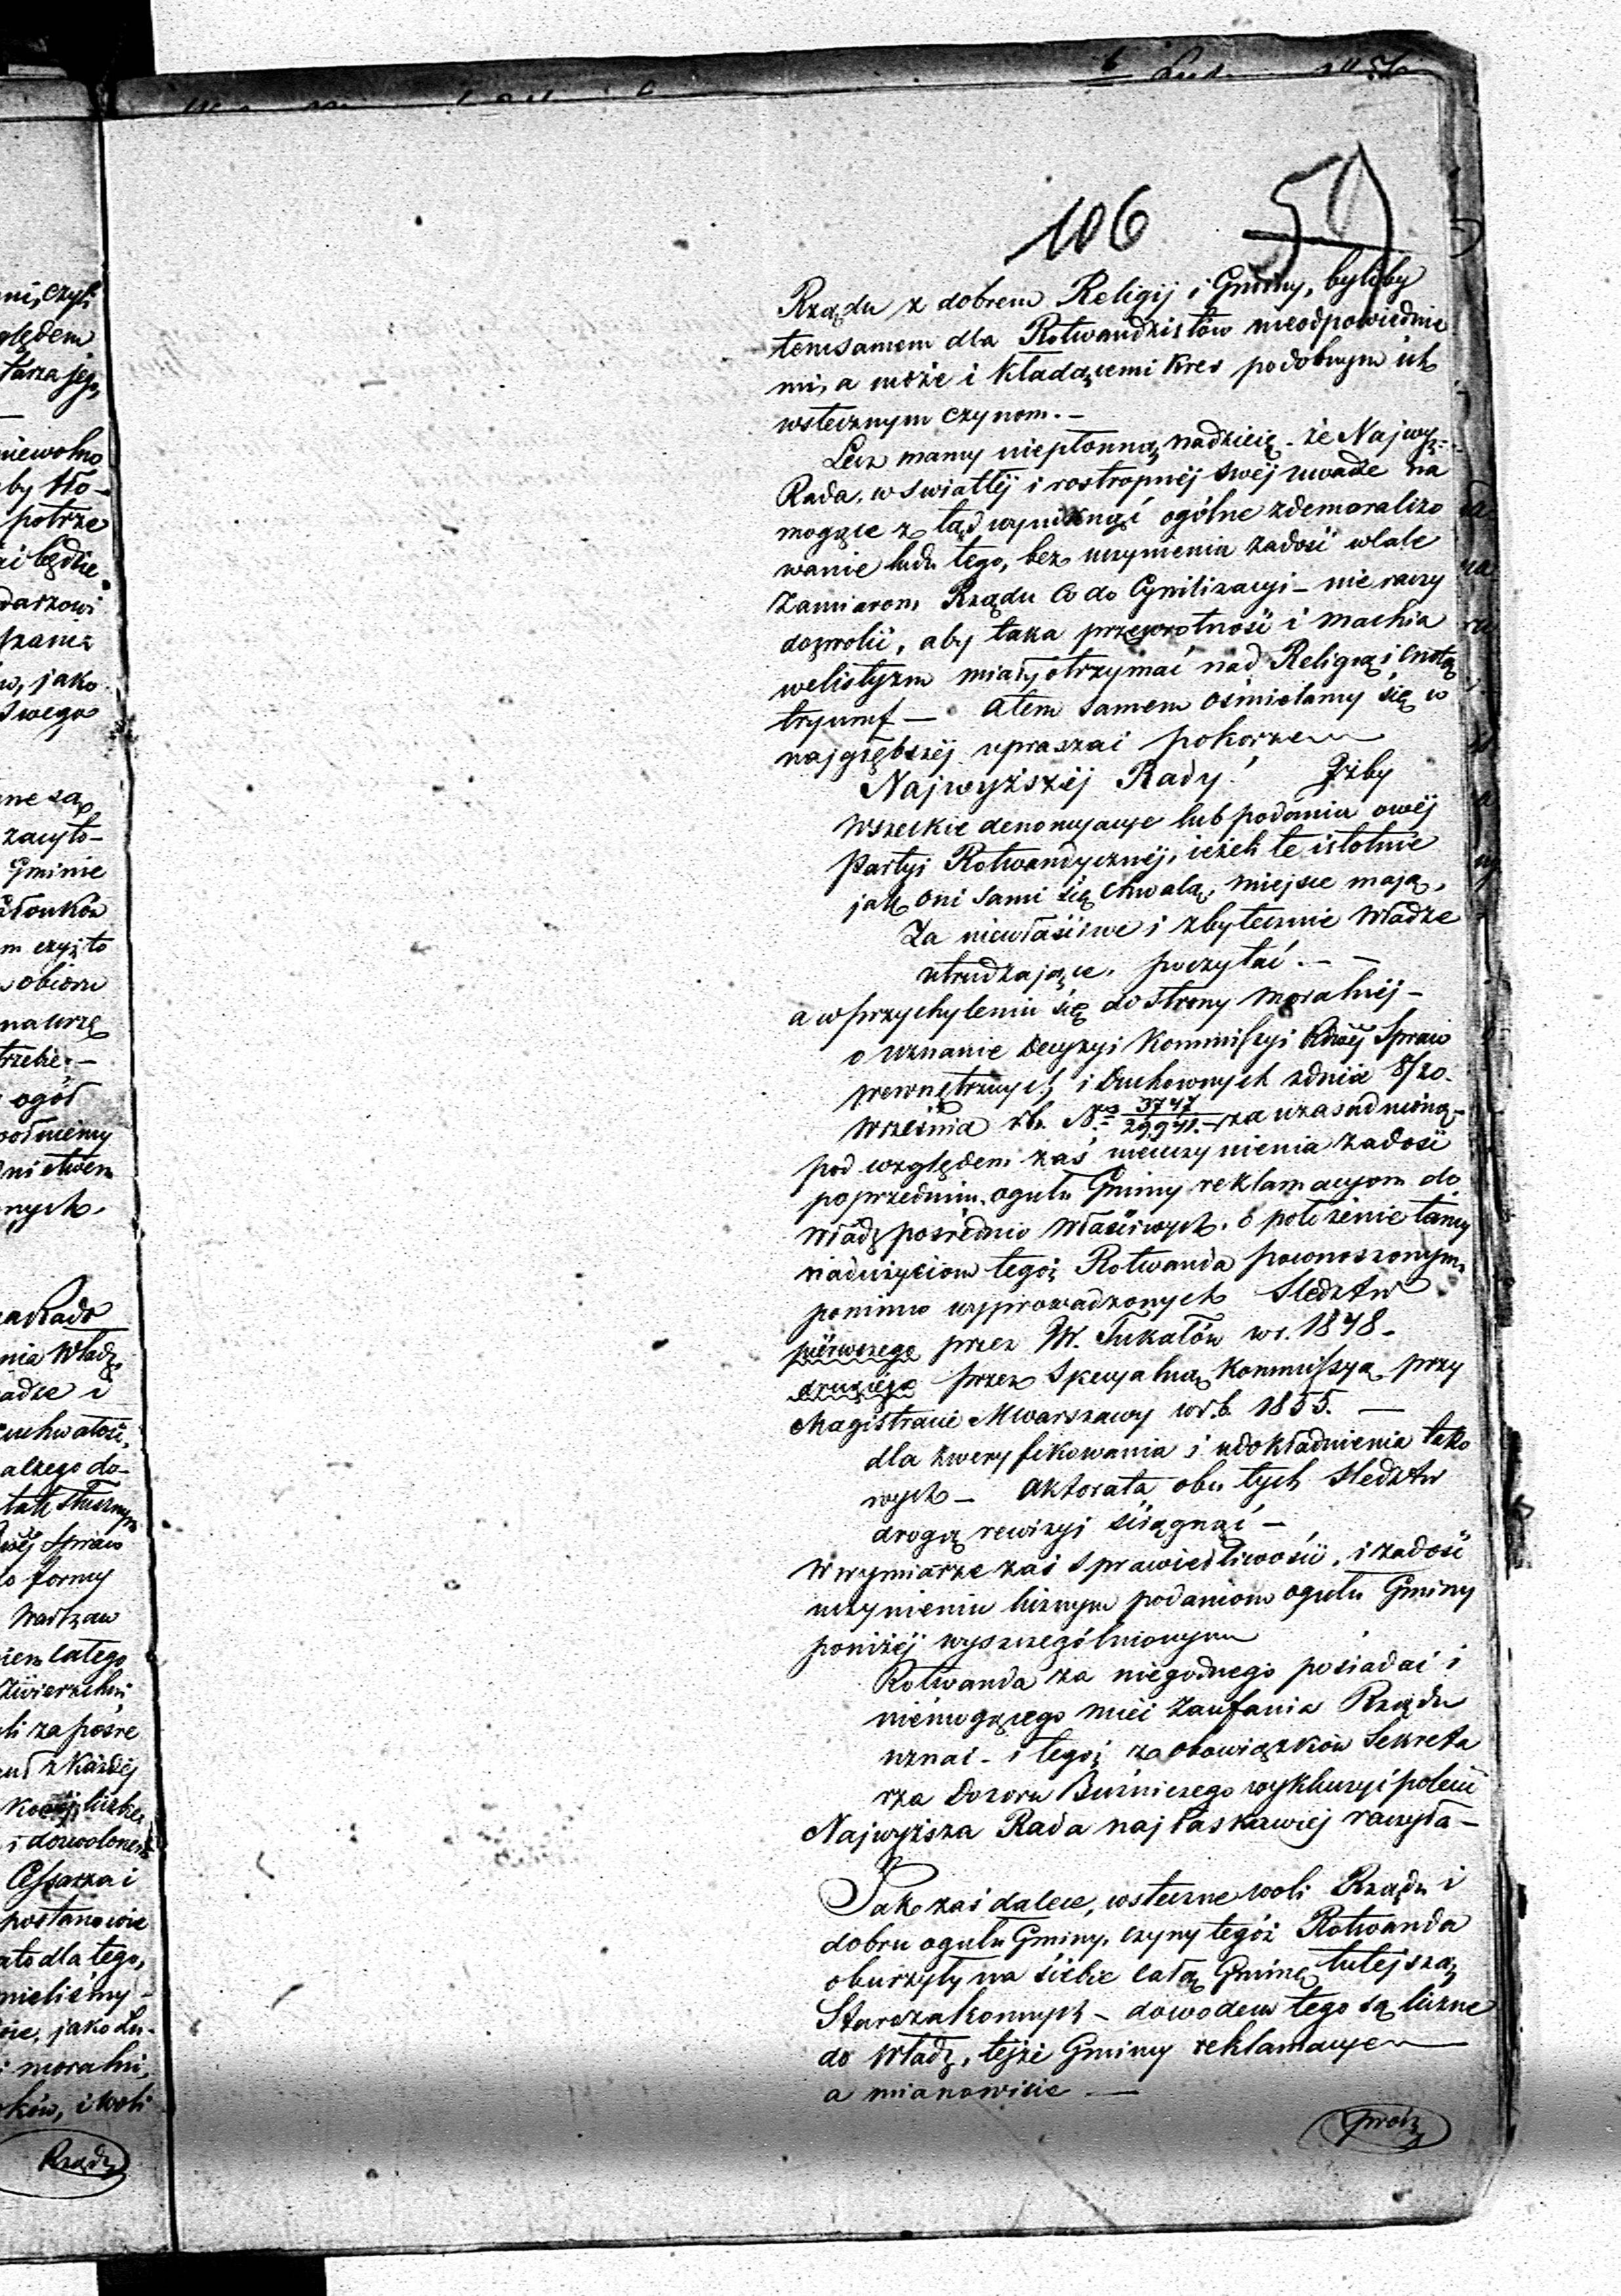 106
Rządu z dobrem Religij i Gminy, byliby
temsamem dla Rotwandzistów nieodpowiednie
mi, a może i kładącemi kres podobnym ich
wstecznym czynom. –
Lecz mamy niepłonną nadzieię - że Najwyż:
Rada, w światłéj i rostropnéj swéj uwadze na
mogące z tąd wyniknąć ogólne zdemoralizo
wanie ludu tego, bez uczynienia zadość wcale
Zamiarom Rządu Co do Cywilizacyi – nie raczy
dozwolić, aby taka przewrotność i machia
welistyzm miały otrzymać nad Religią i cnotą
tryumf – A tem samem ośmielamy się w
najgłębszéj upraszać pokorze
Najwyższéj Rady! Iżby
Wszelkie denoncyacye lub podania owéj
Partyi Rotwandycznéj, ieżeli te istotnie
jak oni sami się chwalą, miejsce mają,
Za niewłaściwe i zbytecznie Władze
utrudzające, poczytać. – –
a w przychyleniu się do strony moralnéj –
o uznanie Decyzyi Kommissyi Rdwéj Spraw
wewnętrznych i Duchownych z dnia 8/20.
Września rb. No 3747/29941. – za uzasadnioną –
pod względem zaś nieuczynienia zadość
poprzednim ogułu Gminy reklamacyom do
Władz pośrednio Właściwych, o położenie tamy
nadużyciom tegoż Rotwanda pownoszonym,
pomimo wyprowadzonych Sledztw
piérwszego przez W. Tukałłów w r. 1848 –
drugiégo przez Specyalną Kommissyą przy
Magistracie M Warszawy w r. b. 1855. –
dla zweryfikowania i udokładnienia tako
wych – Aktorata obu tych Sledztw
drogą rewizyi ściągnąć –
W wymiarze zaś Sprawiedliwości, i zadość
uczynieniu licznym podaniom ogułu Gminy
poniżéj wyszczególnionym
Rotwanda za niegodnego posiadać i
niemogącego mieć Zaufania Rządu
uznać – i tegoż z obowiązków Sekreta
rza Dozoru Bużniczego wykluczyć polecić
Najwyższa Rada najłaskawiej raczyła –
Jak zaś dalece, wsteczne woli Rządu i
dobru ogułu Gminy, czyny tegóż Rotwanda
oburzyły na siébie całą Gminę tutejszą
Starozakonnych – dowodem tego są liczne
do Władz, tejże Gminy reklamacye
a mianowicie –
prócz
ględem
tarza jego,
niewolno
potrze
ai będzie
jako
swego
ne są
zacyto-
Gminie
członków
m czyż to
obioru
ogół
Władz,
adze i
tak słusznym
Spraw
formy
Warszaw
całego
Zwierzchni
li za pośre
z każdéj
i dozwolonem
Cesarza i
postanowie
ato dla tego,
mieliśmy –
jako Lu-
i moralni,
ków, i woli
Rządu